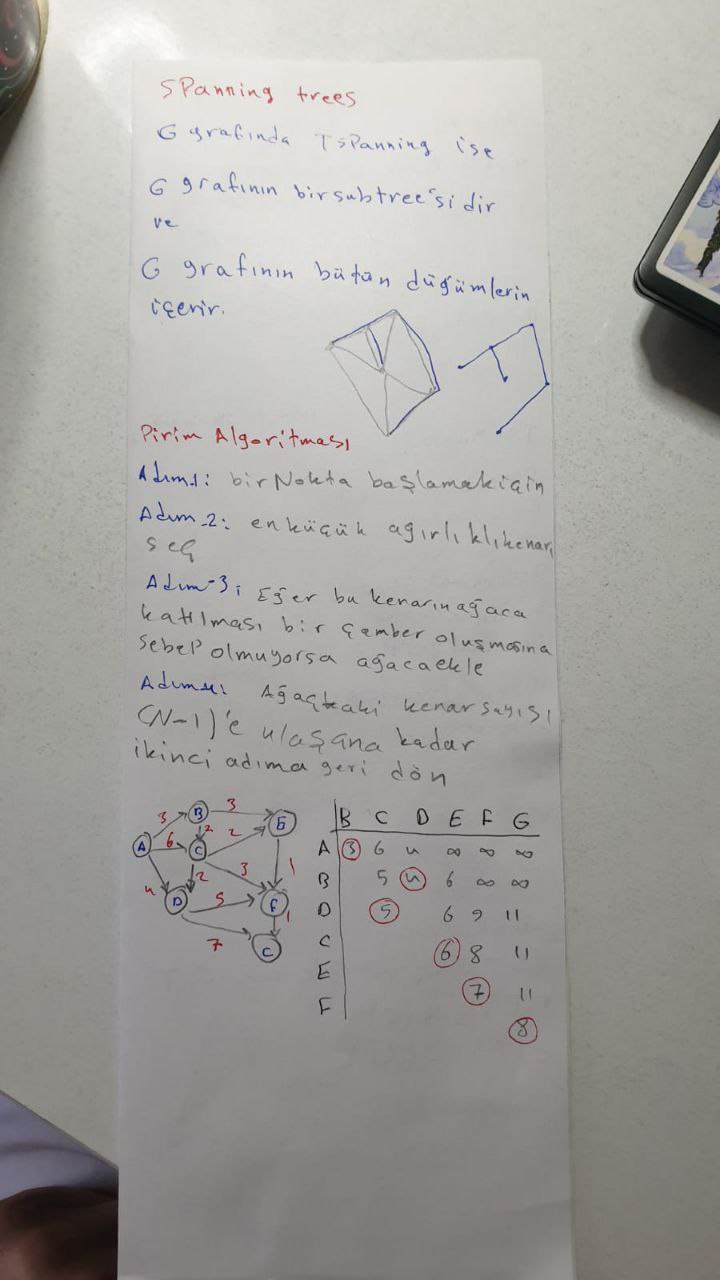 SPanning trees
G grafında TsPanning ise
G grafının birsubtree'si dir
ve
G grafının bütün düğümlerin
içerir.
Pirim Algoritması
Adım-1: bir Nokta başlamak için
Adım-2: en küçük ağırlıklıkenarı
seç
Adım-3: Eğer bu kenarın ağaca
katılması bir çember oluşmasına
sebep olmuyorsa ağacaekle
Adım-4: Ağaçtaki kenar sayısı
(N-1)'e ulaşana kadar
ikinci adıma geri dön
B C D E F G
A 3 6 4 ∞ ∞ ∞
B 5 4 6 ∞ ∞
D 5 6 9 11
C 6 8 11
E 7 11
F 8
A B C D E F C
3 3 6 2 2 1 4 2 3 5 1 7